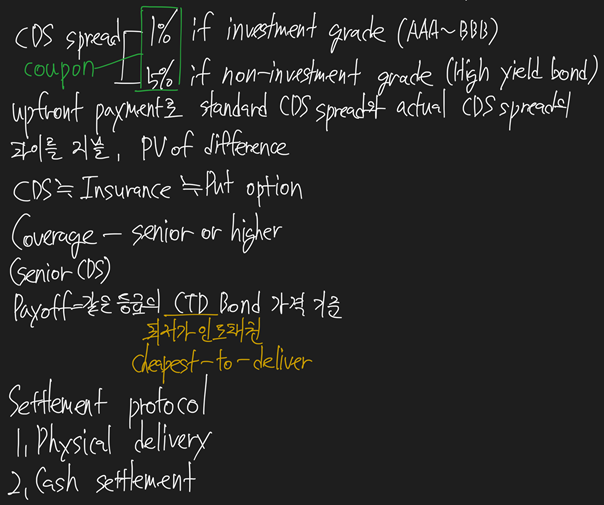 CDS spread 1% if investment grade (AAA~BBB)
coupon 5% if non-investment grade (High yield bond)
upfront payment로 standard CDS spread와 actual CDS spread의
차이를 지불, PV of difference
CDS≒Insurance≒Put option
Coverage - senior or higher
(senior CDS)
Payoff=같은 등급의 CTD Bond 가격 기준
최저가인도채권
cheapest-to-deliver
Settlement protocol
1, Physical delivery
2, Cash settlement